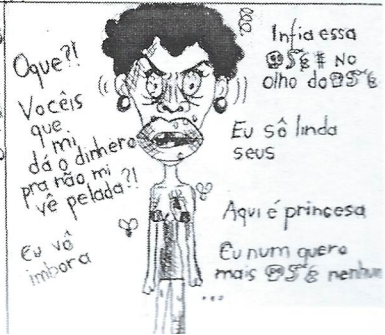 Oque?!
Vocêis
que
mi
dá o dinhero
pra não mi
vê pelada?!
Eu vô
imbora
Infia essa
@$%# No
olho do@$%
Eu sô linda
seus
Aqui é princesa
Eu num quero
mais @$% nenhum
...